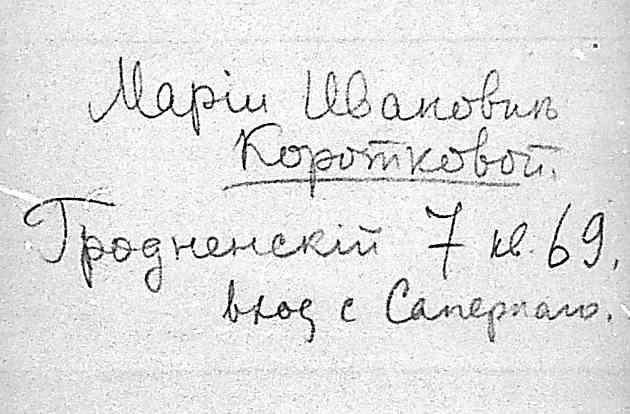 Маріи Ивановнѣ
Коротковой.
Гродненскій 7 кв. 69,
вход с Сапернаго.